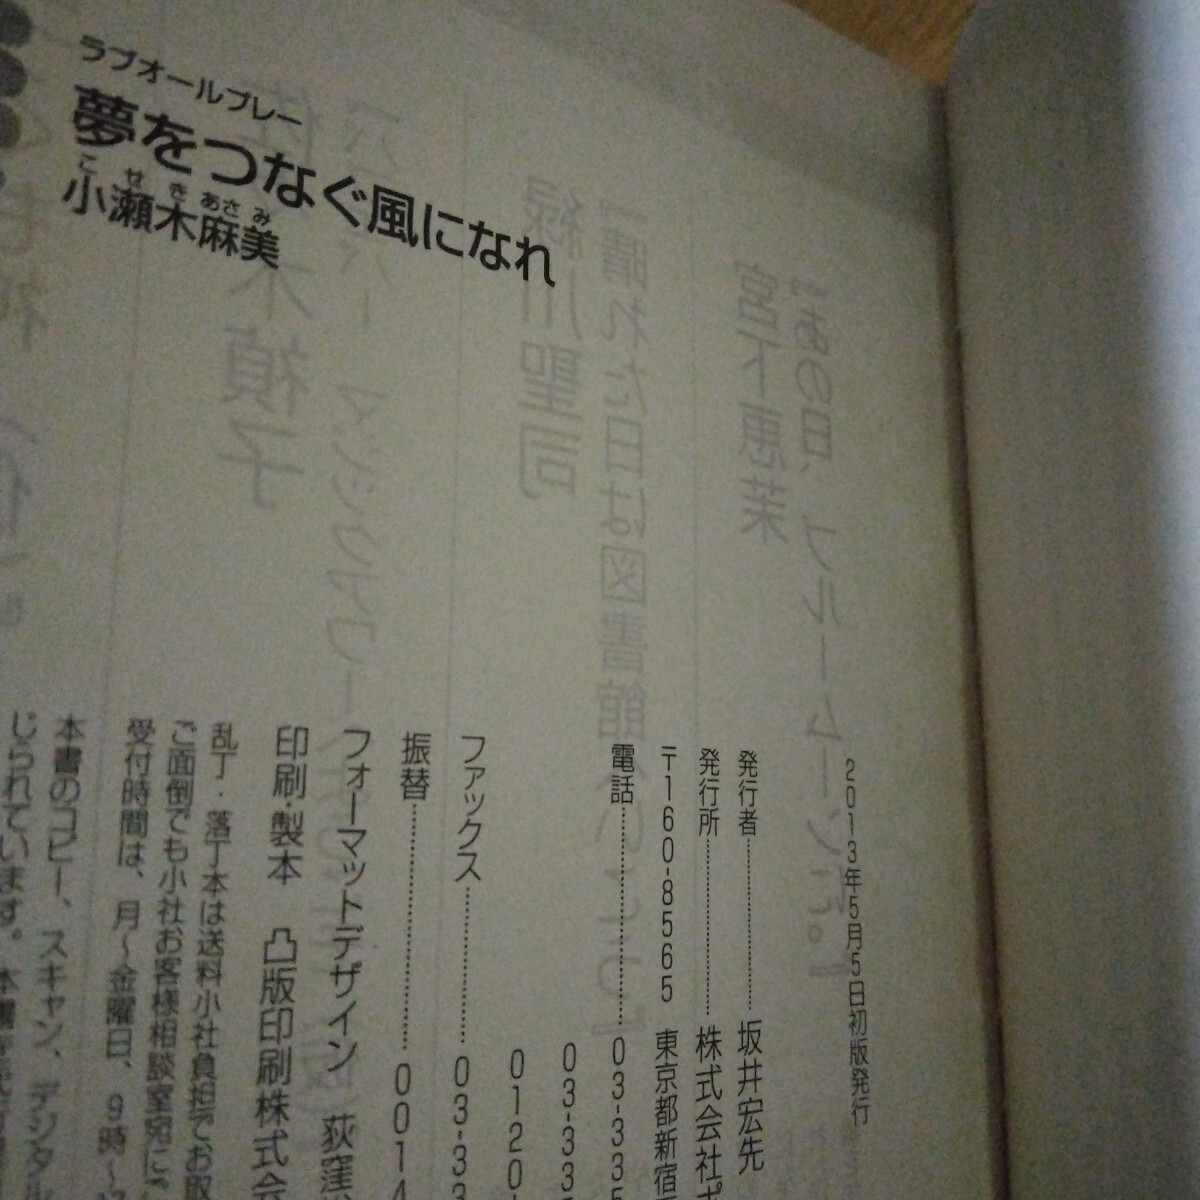 ラブオールプレー
夢をつなぐ風になれ
こせきあさみ
小瀬木麻美
2013年5月5日初版発行
発行者……………坂井宏先
発行所……………株式会社ポ
〒160-8565 東京都新宿
電話……………03-335
03-335
0120-
ファックス……………03-33
振替……………0014
フォーマットデザイン 荻窪
印刷・製本 凸版印刷株式会
乱丁・落丁本は送料小社負担でお取
ご面倒でも小社お客様相談室宛にご
受付時間は、月〜金曜日、9時〜
本書のコピー、スキャン、デジタル
じられています。本書を
『あの日、ブルームーンに。』
宮下恵茉
『晴れた日は図書館へいこう』
緑川聖司